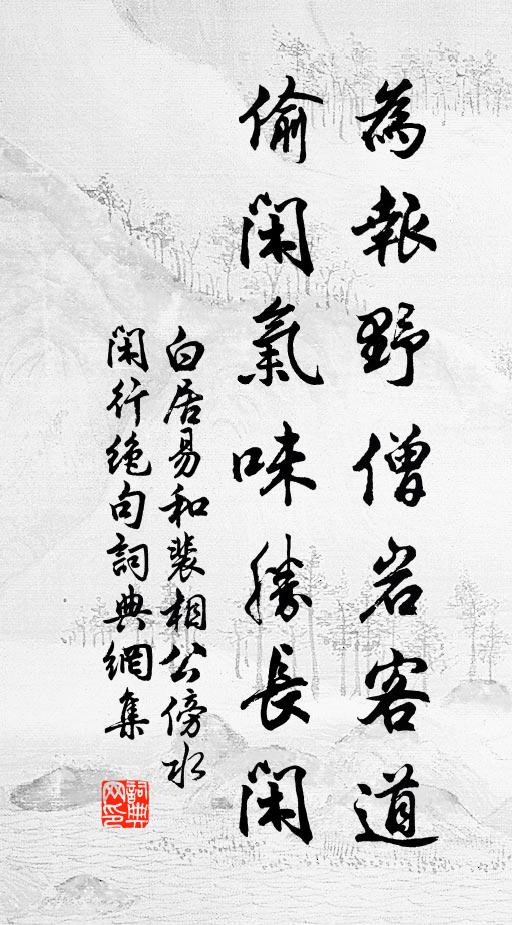 為報野僧岩客道
偷閑氣味勝長閑
白居易和裴相公傍水
閑行絶句詞典網集
詞典
网印